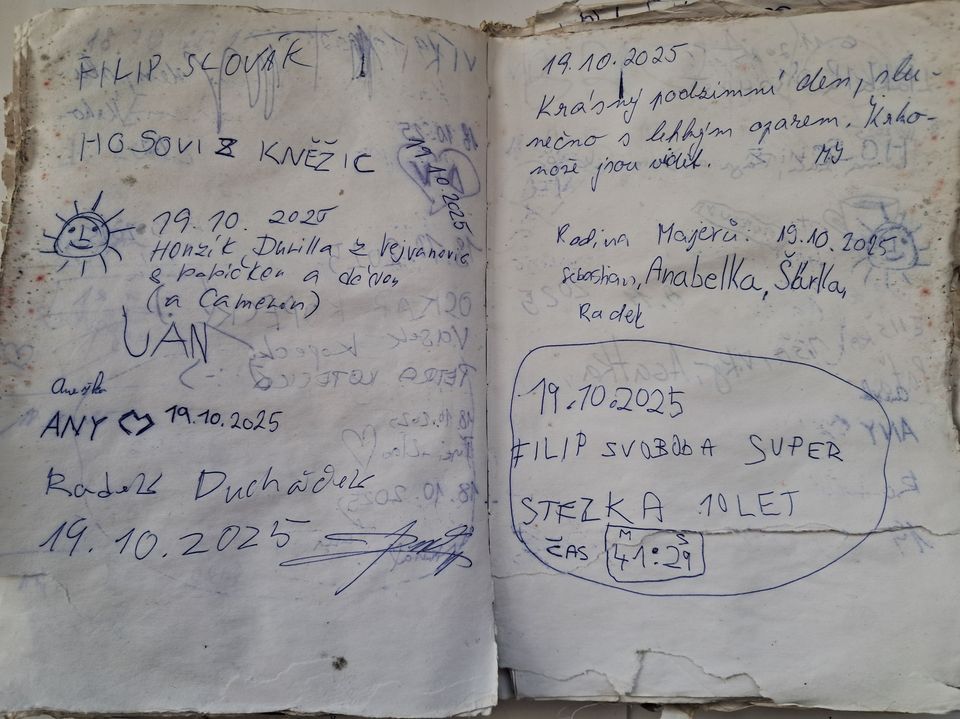 FILIP SLOVÁK
HOSOVI Z KNĚŽIC
19.10.2025
19.10. 2025
Honzík Durilla z Vejvanovic
s babičkou a dědou
(a Camerón)
ANY 19.10.2025
Radek Ducháček
19.10.2025
19.10.2025
Krásný podzimní den, slu-
nečno s lehkým oparem. Krko-
noše jsou vidět.
Rodina Majerů. 19.10.2025
Sebastian, Anabelka, Šárka,
Radek
19.10.2025
FILIP SVOBODA SUPER
STEZKA 10 LET
M S
ČAS 41:29